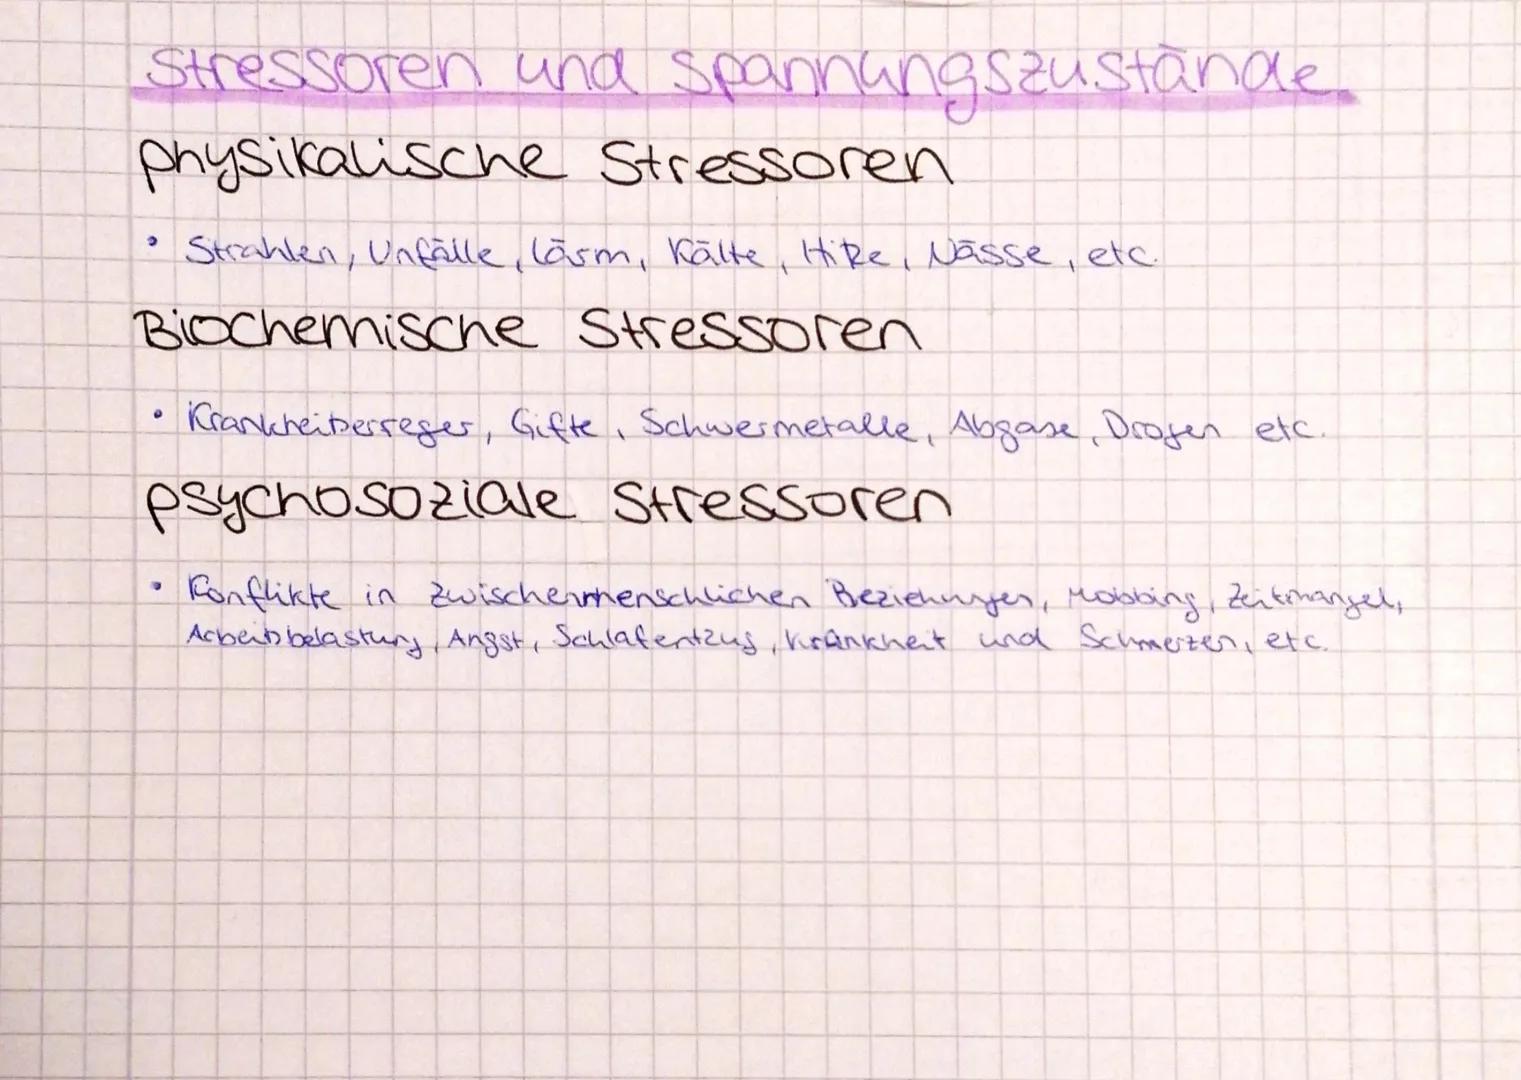 Stressoren und Spannungszustände.
physikalische Stressoren
• Strahlen, Unfälle, Lärm, Kälte, Hitze, Nässe, etc.
Biochemische Stressoren
• Krankheitserreger, Gifte, Schwermetalle, Abgase, Drogen etc.
psychosoziale Stressoren
• Konflikte in zwischenmenschlichen Beziehungen, Mobbing, Zeitmangel,
Arbeitsbelastung, Angst, Schlafentzug, Krankheit und Schmerzen, etc.